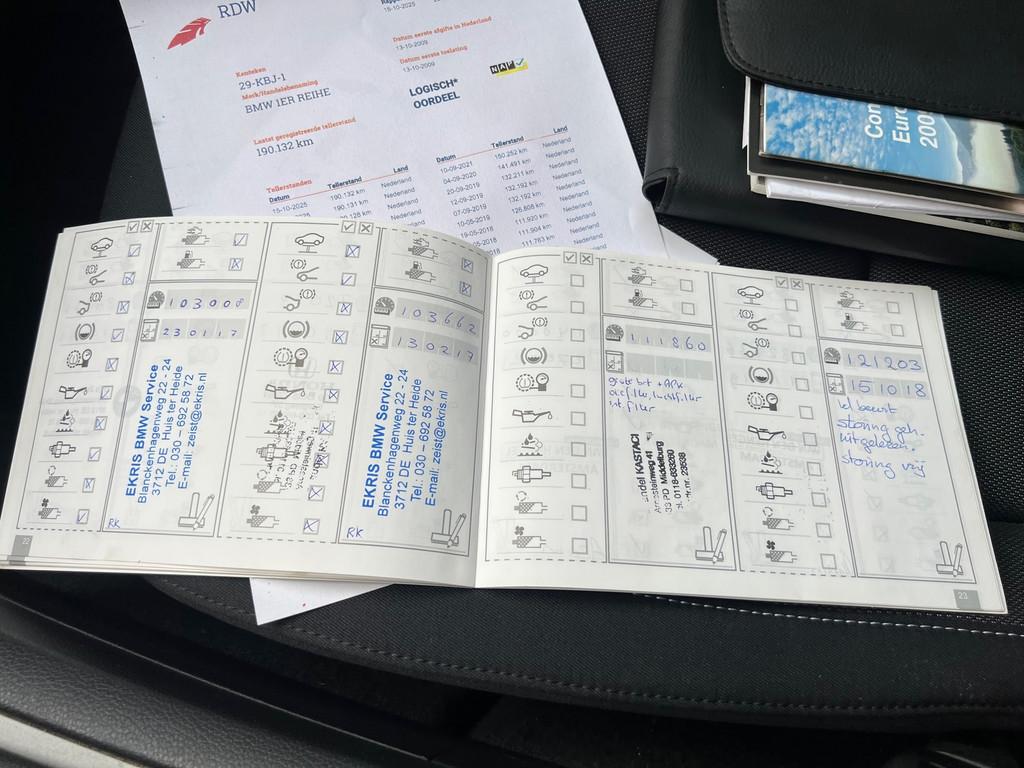 RDW
15-10-2025
Kenteken
29-KBJ-1
Merk/Handelsbenaming
BMW 1ER REIHE
Laatst geregistreerde tellerstand
190.132 km
Datum eerste afgifte in Nederland
13-10-2009
Datum eerste toelating
13-10-2009
NAP
LOGISCH*
OORDEEL
Tellerstanden
Datum Tellerstand Land
15-10-2025 190.132 km Nederland
190.131 km Nederland
Nederland
Datum Tellerstand Land
10-09-2021 150.252 km Nederland
04-09-2020 141.491 km Nederland
20-09-2019 132.211 km Nederland
12-09-2019 132.192 km Nederland
07-09-2019 132.192 km Nederland
10-05-2019 126.808 km Nederland
19-05-2018 111.920 km Nederland
111.904 km Nederland
111.763 km
Con
Euro
200
103008
230117
EKRIS BMW Service
Blanckenhagenweg 22 - 24
3712 DE Huis ter Heide
Tel.: 030 - 692 58 72
E-mail: zeist@ekris.nl
RK
22
103662
130217
EKRIS BMW Service
Blanckenhagenweg 22 - 24
3712 DE Huis ter Heide
Tel.: 030 - 692 58 72
E-mail: zeist@ekris.nl
RK
111860
grote brt + APK
oliefilter, luchtfilter
int. filter
KASTACI
Arnesteinweg 41
PD Middelburg
0118-633260
nr. 23538
121203
151018
storing geh.
uitgelezen
storing vrij
23